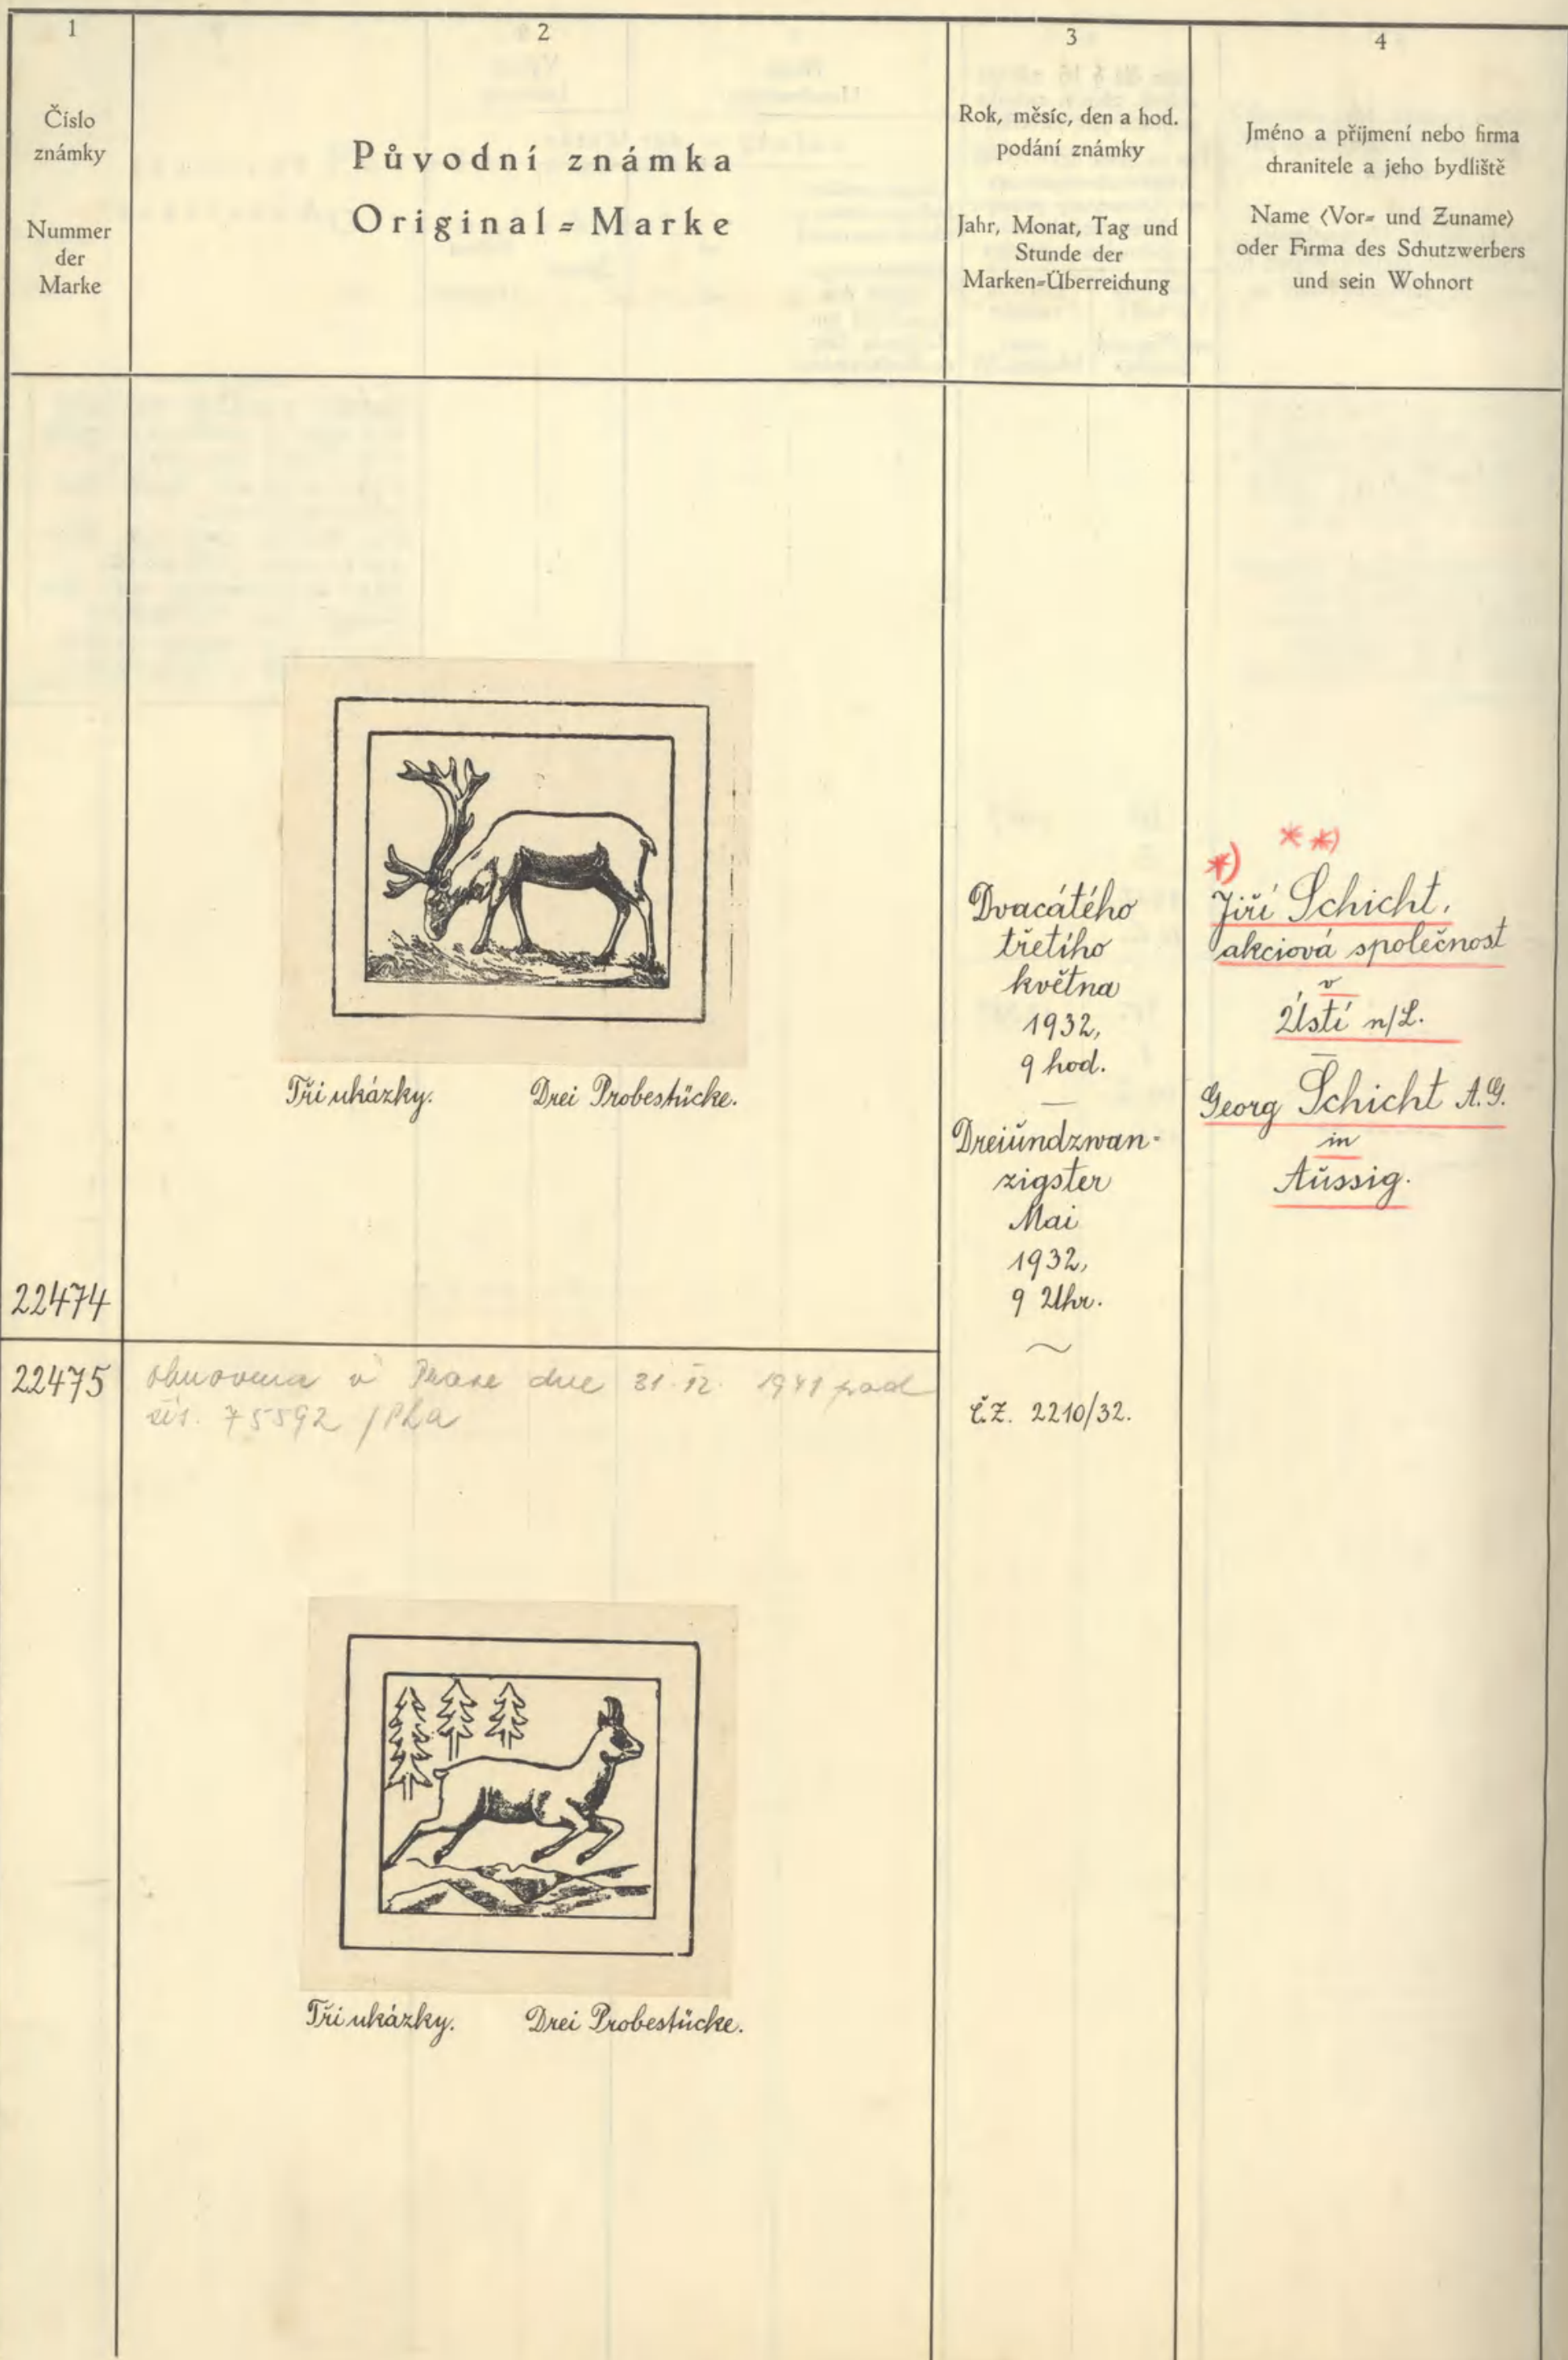 1
Číslo
známky
Nummer
der
Marke
2
Původní známka
Original=Marke
3
Rok, měsíc, den a hod.
podání známky
Jahr, Monat, Tag und
Stunde der
Marken=Überreichung
4
Jméno a příjmení nebo firma
chranitele a jeho bydliště
Name (Vor= und Zuname)
oder Firma des Schutzwerbers
und sein Wohnort
22474
Tři ukázky. Drei Probestücke.
Dvacátého
třetího
května
1932,
9 hod.
—
Dreiundzwan-
zigster
Mai
1932,
9 Uhr.
~
č.Z. 2210/32.
**)
*)
Jiří Schicht,
akciová společnost
v
Ústí n/L.
—
Georg Schicht A.G.
in
Aussig.
22475
obnovena v Praze dne 31. 12. 1941 pod
čís. 75592 /Pha
Tři ukázky. Drei Probestücke.